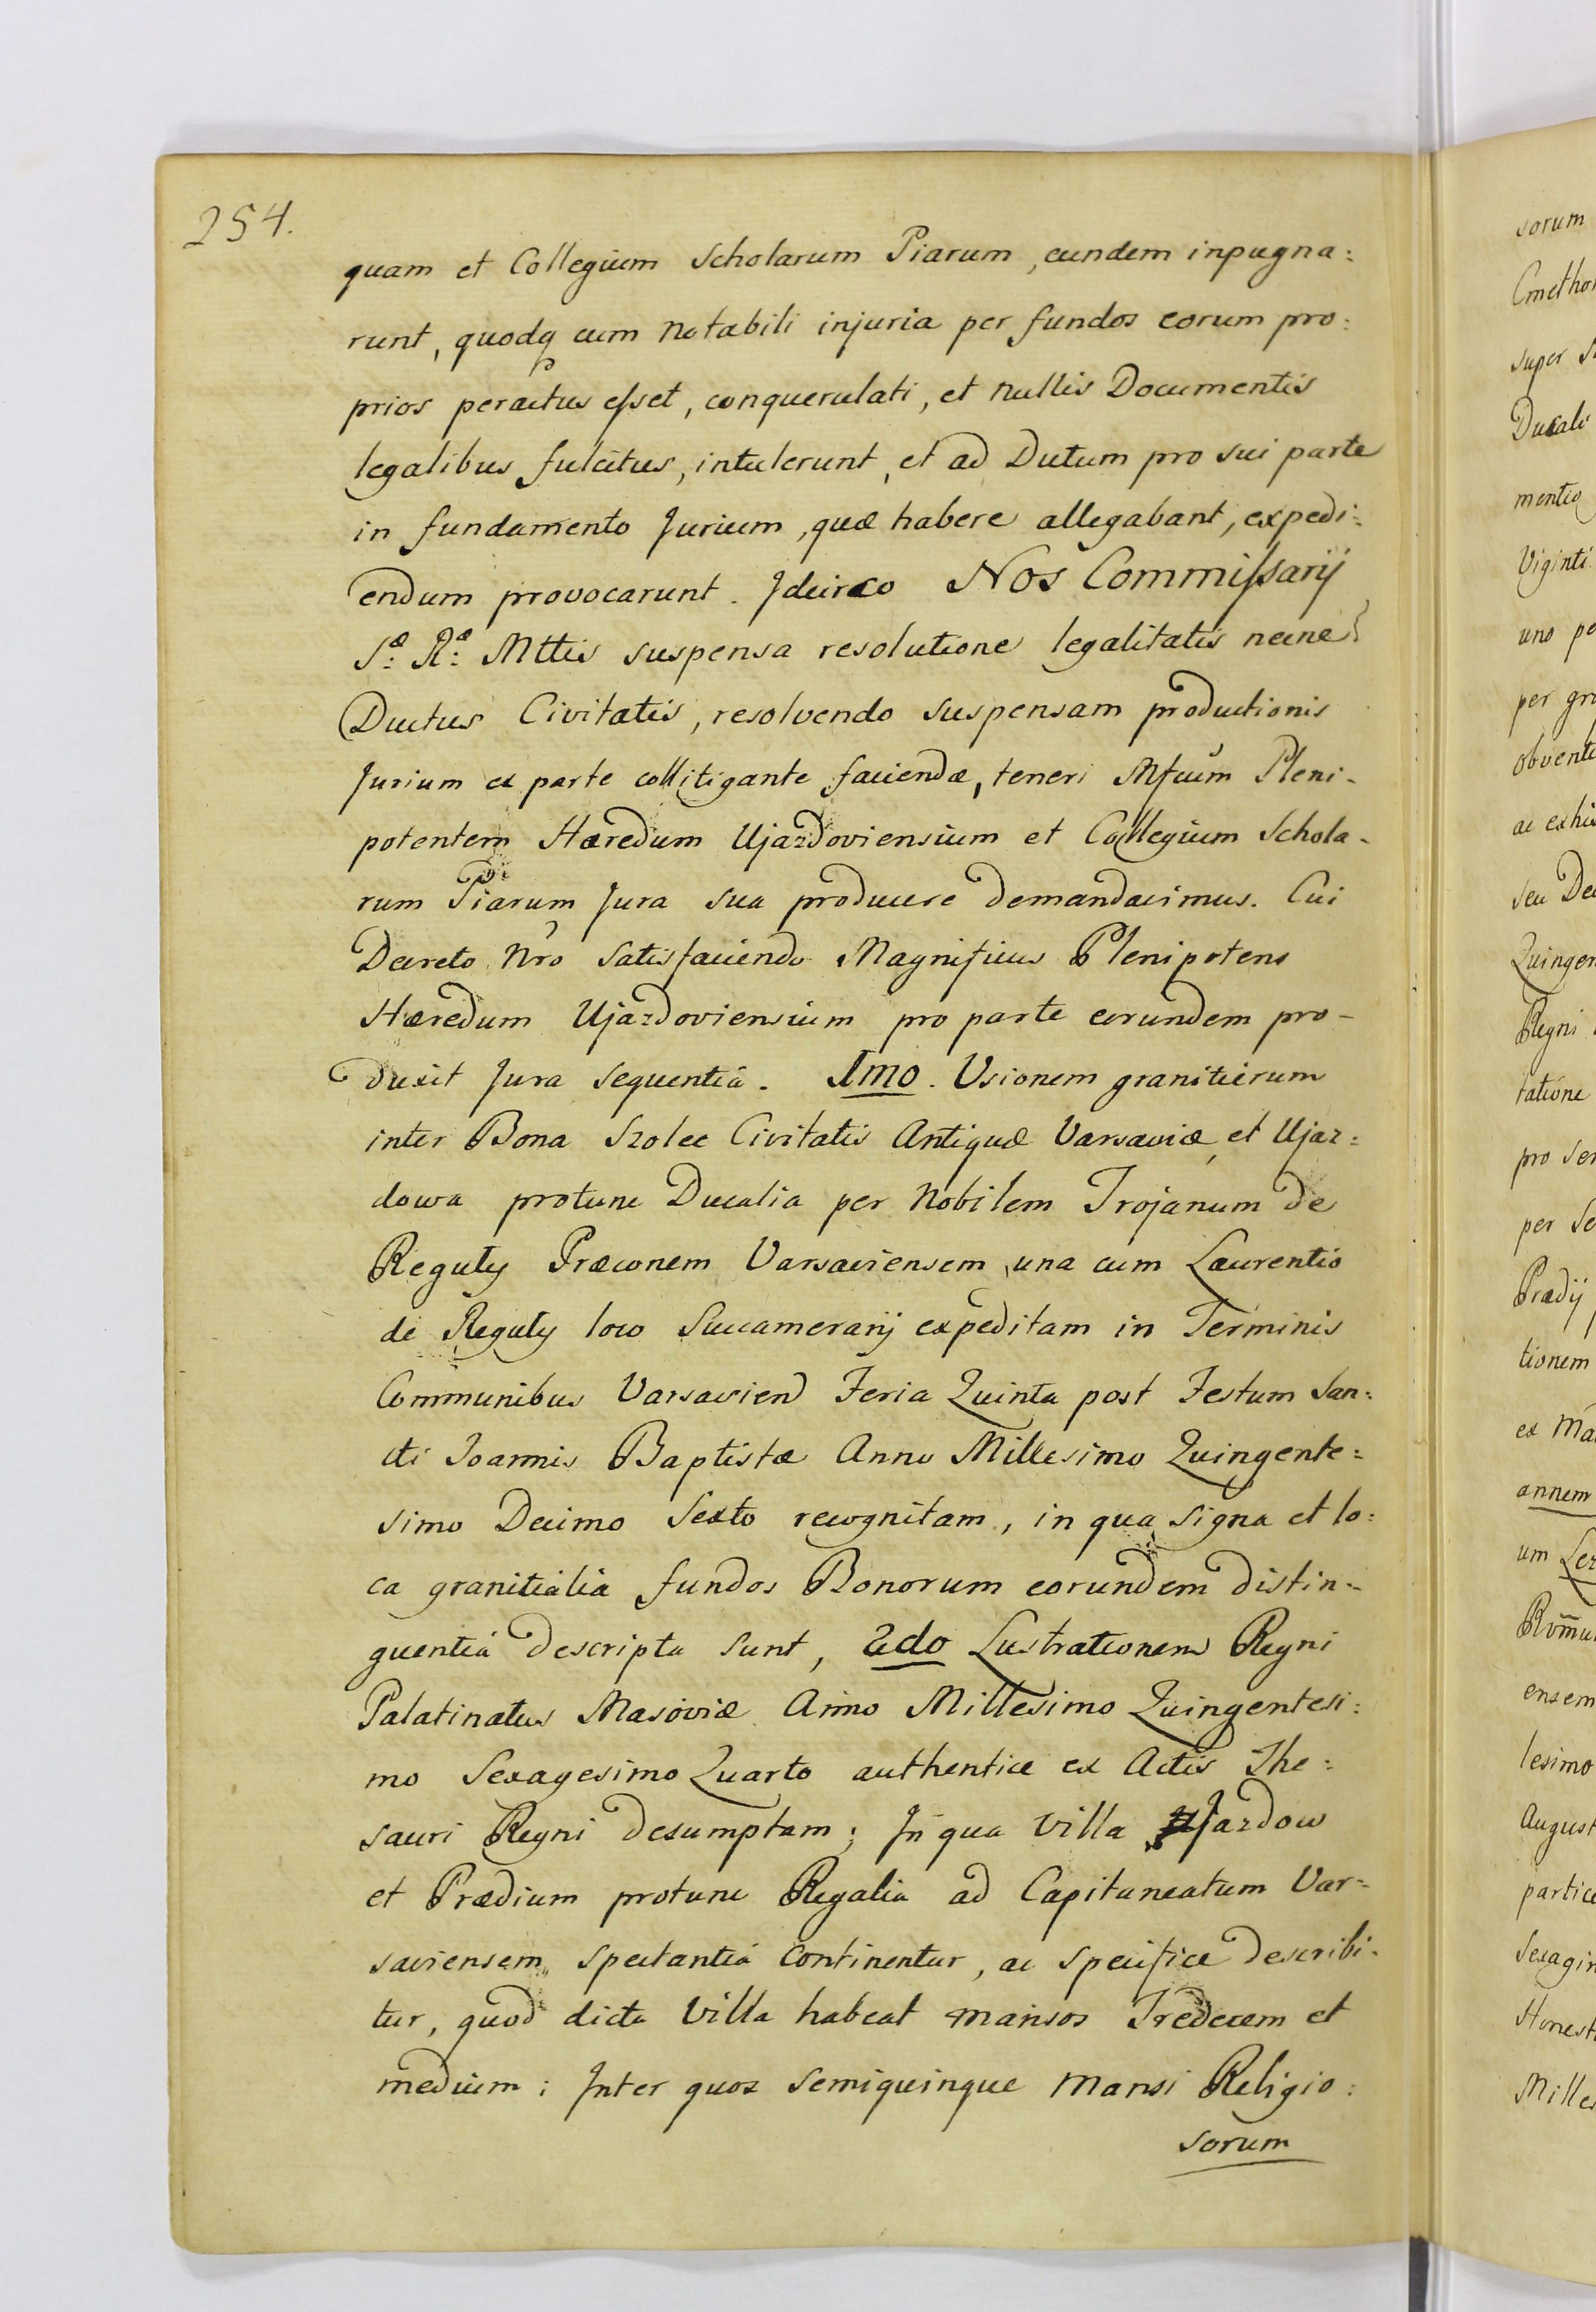 254.
quam et Collegium Scholarum Piarum, eundem inpugna:
runt, quodq cum notabili injuria per fundos eorum pro:
prios peractus esset, conquerulati, et nullis Documentis
legalibus fulcitus, intulerunt, et ad Dutum pro sui parte
in fundamento Jurium, quæ habere allegabant, expedi:
endum provocarunt. Idcirco Nos Commissarij
S:æ R:æ Mttis suspensa resolutione legalitatis necne
Ductus Civitatis, resolvendo suspensam productionis
Jurium ex parte collitigante faciendæ, teneri Mfcum Pleni-
potentem Hæredum Ujazdoviensium et Collegium Schola-
rum Piarum Jura sua producere demandavimus. Cui
Decreto Nro satisfaciendo Magnificus Plenipotens
Hæredum Ujazdoviensium pro parte eorundem pro-
duxit Jura sequentia. 1mo. Visionem granitierum
inter Bona Szolec Civitatis Antiquæ Varsaviæ, et Ujaz:
dowa protunc Ducalia per Nobilem Trojanum de
Reguly Præconem Varsaviensem, una cum Laurentio
de Reguly loco Succamerarij expeditam in Terminis
Communibus Varsavien Feria Quinta post Festum San:
cti Joannis Baptistæ Anno Millesimo Quingente:
simo Decimo Sexto recognitam, in qua signa et lo:
ca granitialia fundos Bonorum eorundem distin:-
guentia descripta sunt, 2do Lustrationem Regni
Palatinatus Masoviæ Anno Millesimo Quingentesi:
mo Sexagesimo Quarto authentice ex Actis The:
sauri Regni desumptam; In qua Villa Jazdow
et Prædium protunc Regalia ad Capitaneatum Var=
saviensem spectantia continentur, ac specifice describi-
tur, quod dicta Villa habeat mansos Tredecem et
medium; Inter quos semiquinque mansi Religio:
sorum
sorum
super
Ducali
Viginti
uno
per
seu
Regni
tatione
pro
per
Prædij
tionem
ex
annem
um
ensem
lesimo